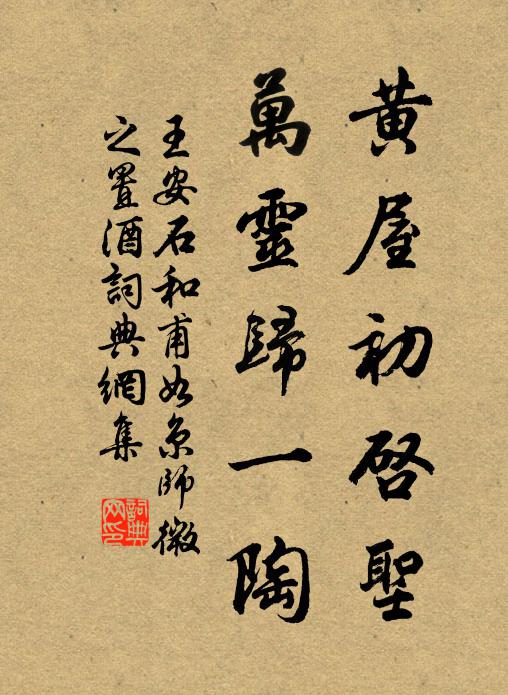 黃屋初啓聖
萬靈歸一陶
王安石和甫如京師微
之置酒詞典網集
詞典網印